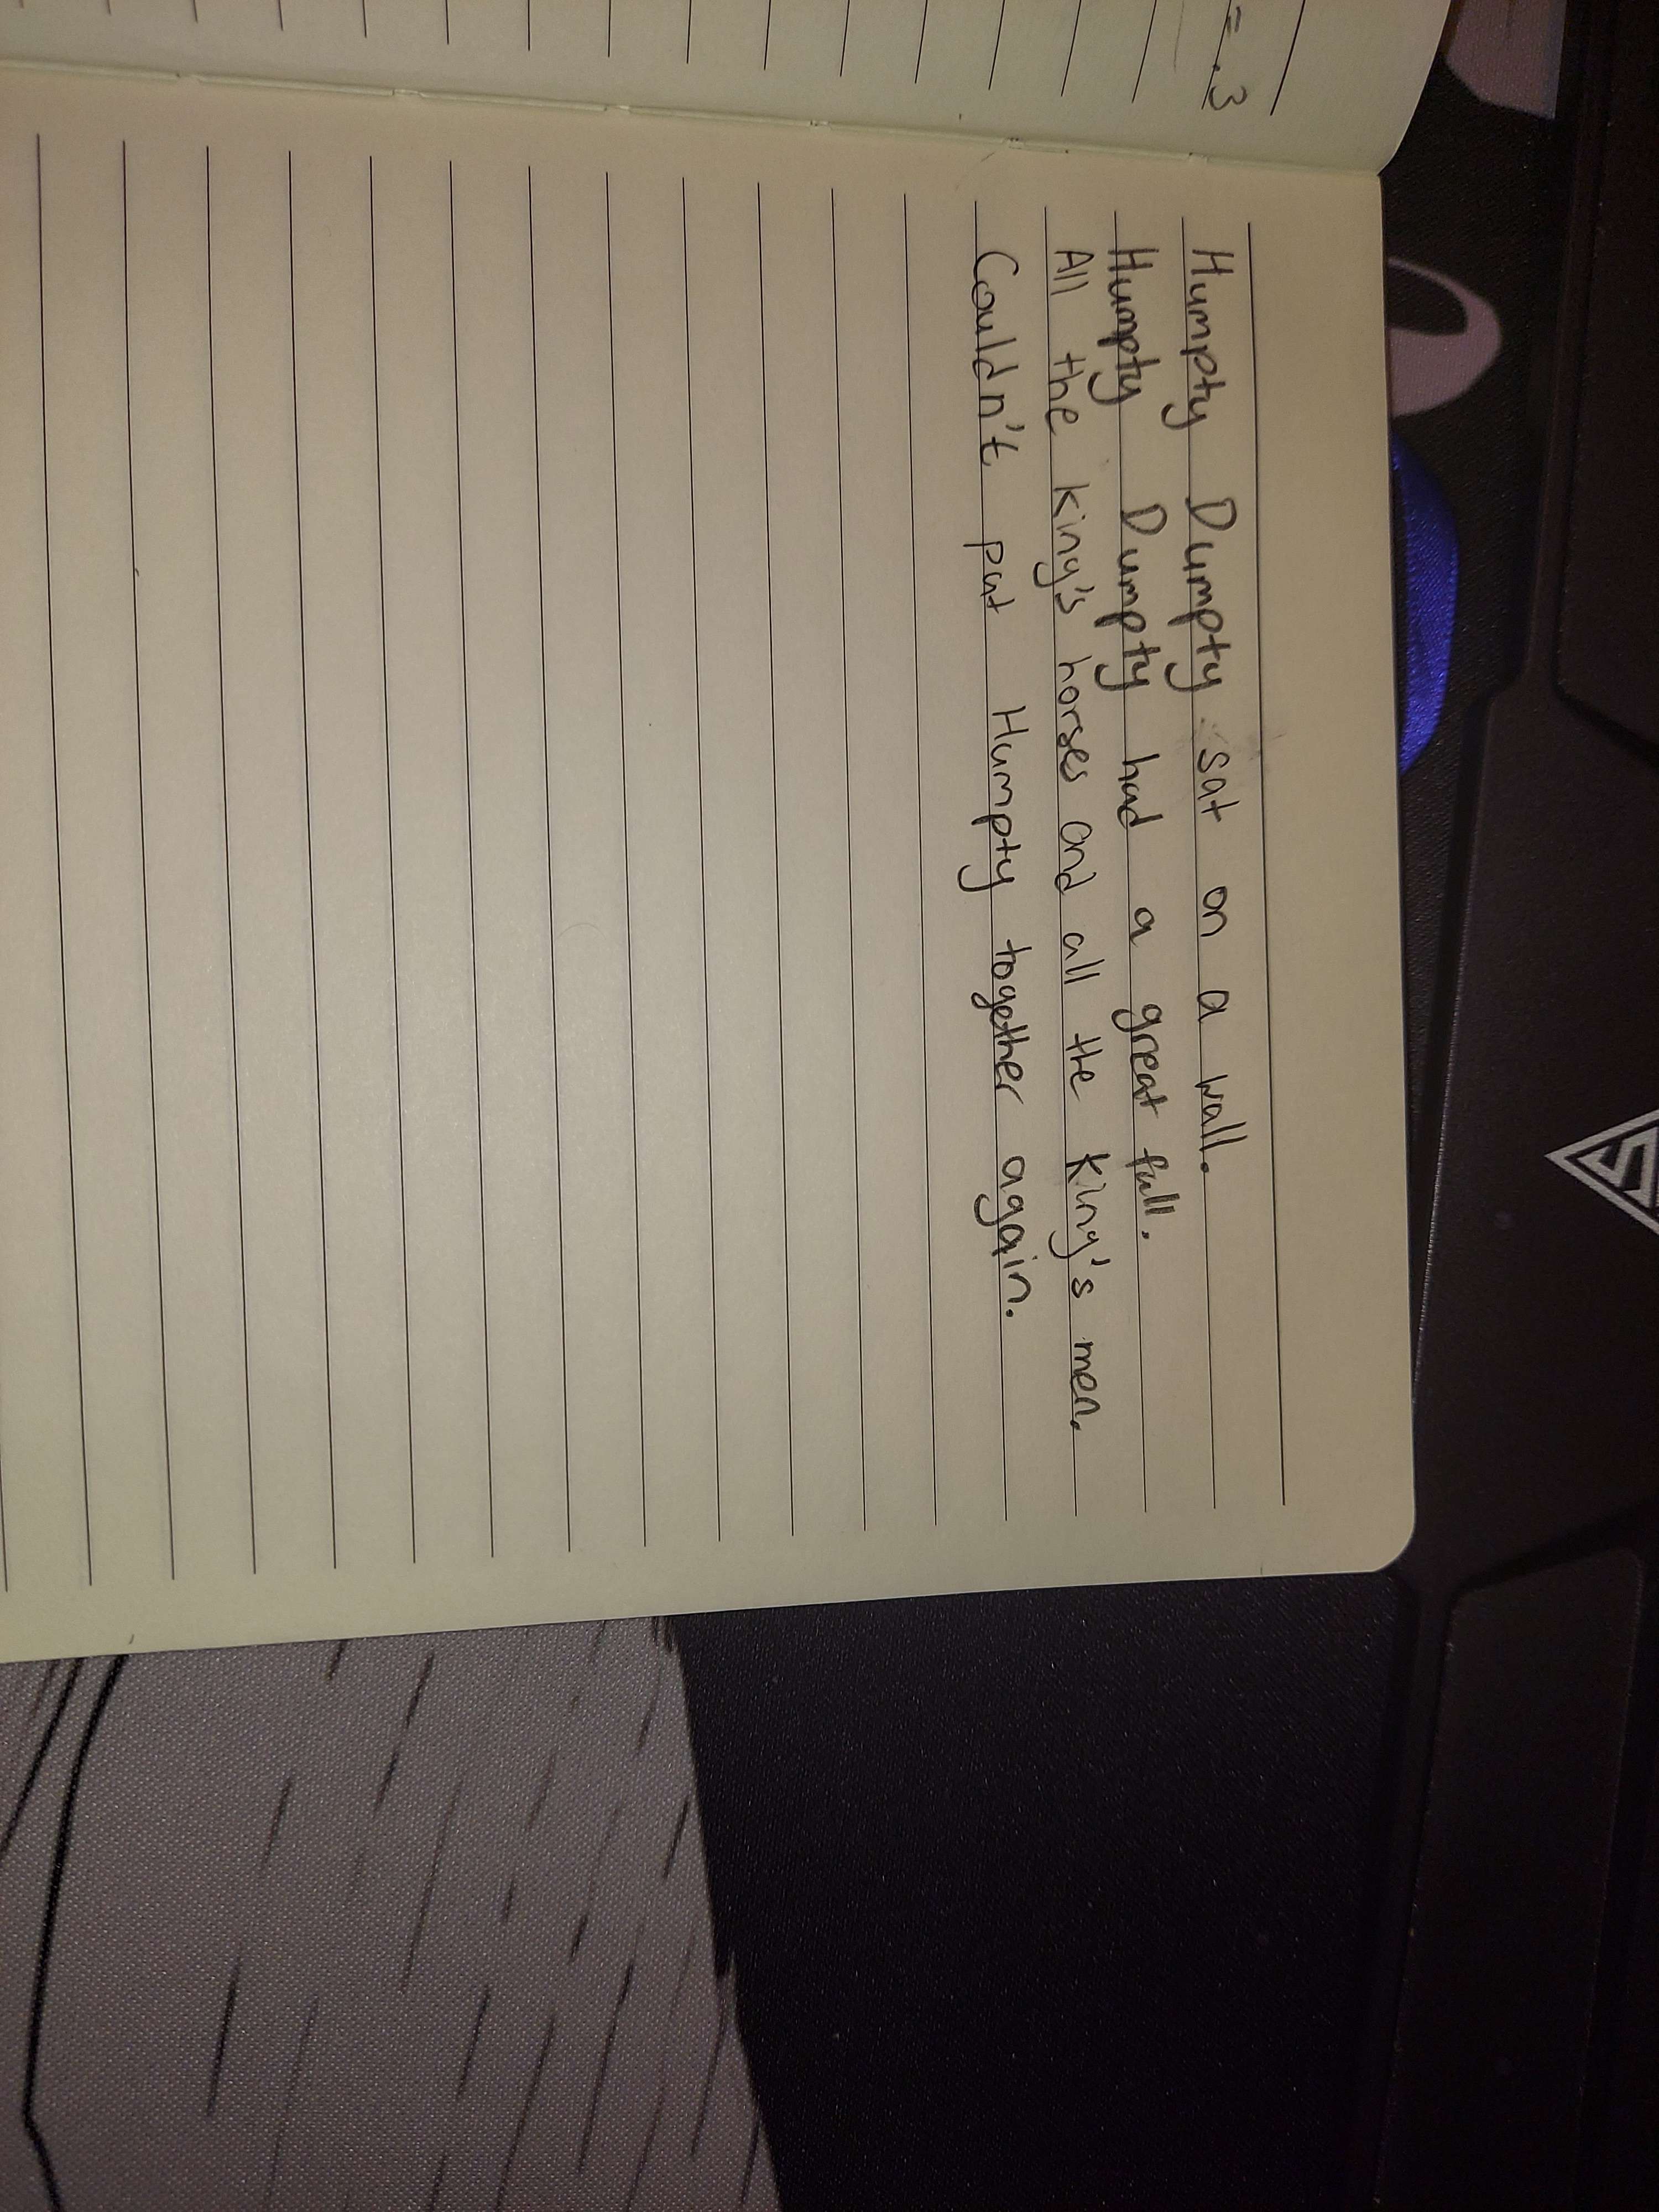 = .3
Humpty Dumpty sat on a wall.
Humpty Dumpty had a great fall.
All the king's horses and all the king's men.
Couldn't put Humpty together again.